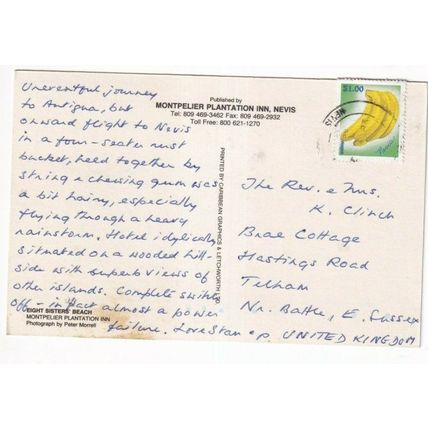 Uneventful journey
to Antigua, but
onward flight to Nevis
in a four-seater rust
bucket, held together by
string & chewing gum was
a bit hairy, especially
flying through a heavy
rainstorm. Hotel idylically
situated on a wooded hill-
side with superb views of
other islands. Complete switch
off - in fact almost a power
failure. Love Stan & P.
EIGHT SISTERS' BEACH
MONTPELIER PLANTATION INN
Photograph by Peter Morrell
Published by
MONTPELIER PLANTATION INN, NEVIS
Tel: 809 469-3462 Fax: 809 469-2932
Toll Free: 800 621-1270
PRINTED BY CARIBBEAN GRAPHICS & LETCHWORTH LTD
$1.00
NEVIS
The Rev. & Mrs.
K. Clinch
Brae Cottage
Hastings Road
Telham
Nr. Battle, E. Sussex
UNITED KINGDOM